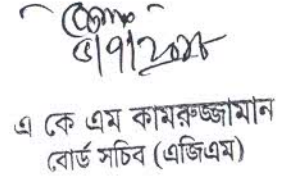 ৮|৭|২০২৫
এ কে এম কামরুজ্জামান
বোর্ড সচিব (এজিএম)